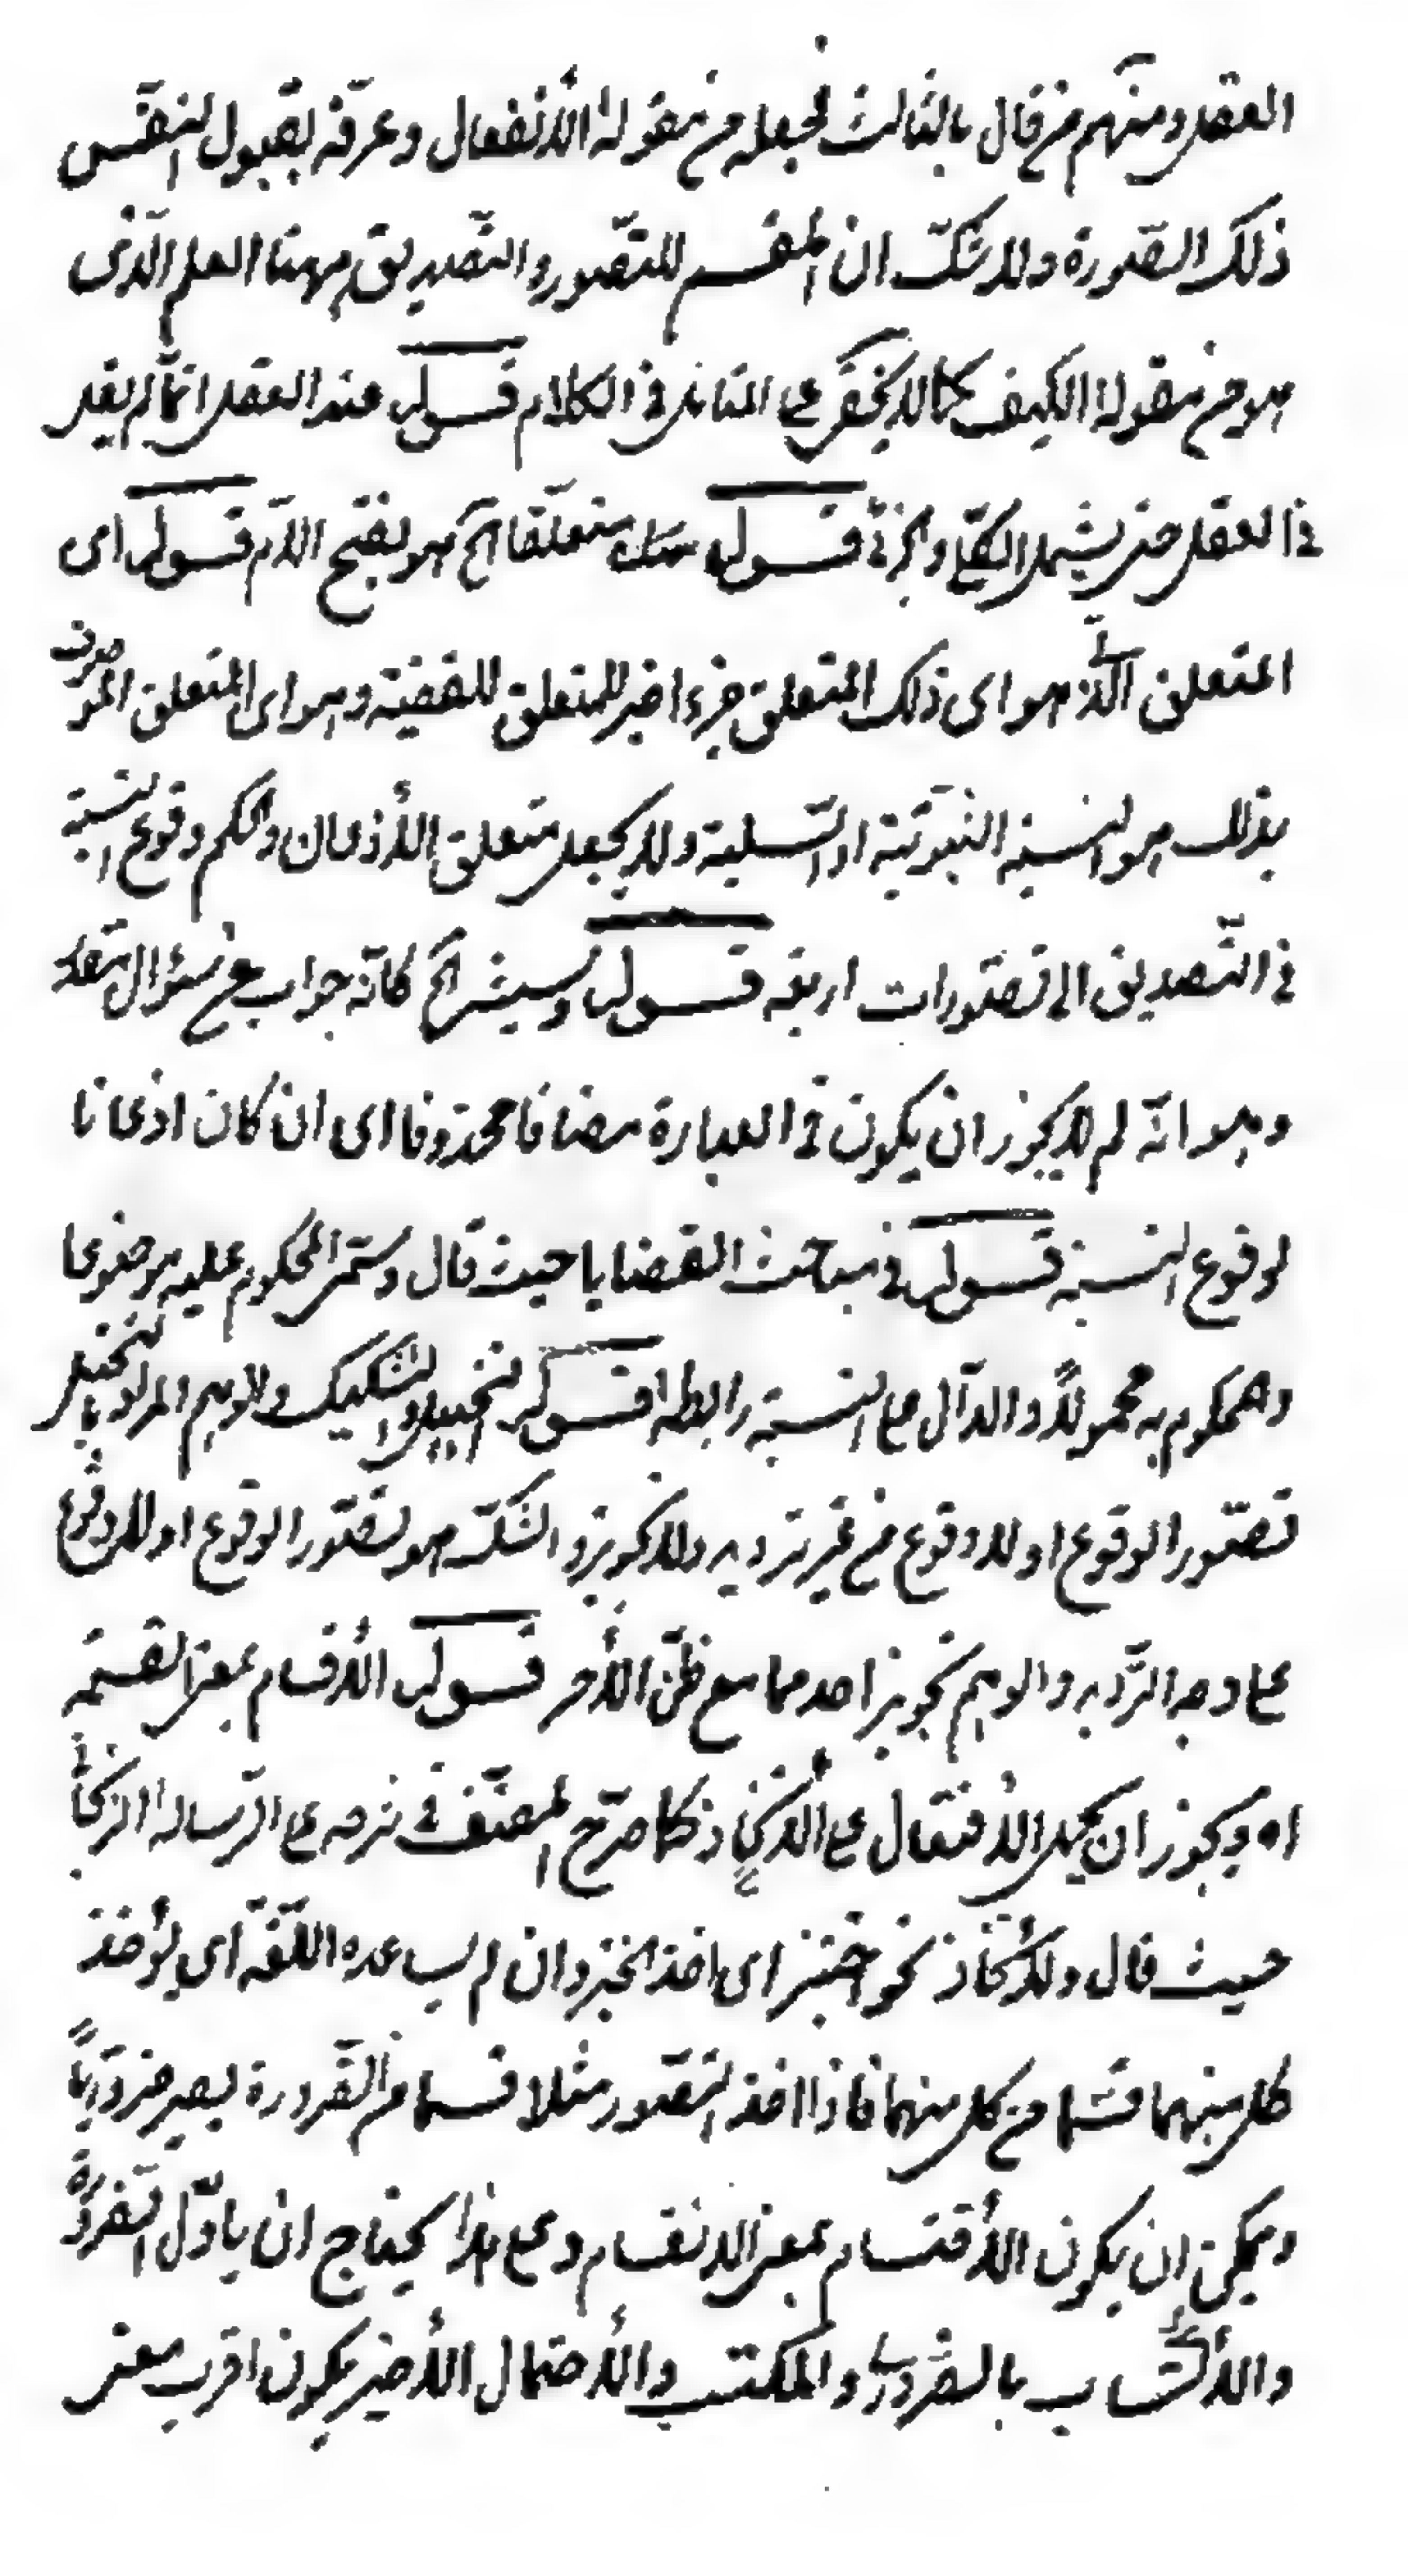 العقل ومنهم من قال بالثالث فجعله من مقولة الأنفعال وعرفه بقبول النفس
ذلك الصورة ولا شك ان المقسم للتصور والتصديق ههنا العلم الذى
هو من مقولة الكيف كما لا يخفى على المتأمل فى الكلام قوله عند العقل انما لم يقل
فى العقل حتى يشمل الكلى والجزئى قوله متعلقا الخ هو بفتح اللام قوله اى
المتعلق الذى هو اى ذلك المتعلق جزء اخير للمتعلق للقضية وهو اى المتعلق الموصوف
بذلك هو النسبة الثبوتية او السلبية ولا يجعل متعلق الأذعان والحكم وقوع النسبة
فى التصديق الى تصورات اربعة قوله وسيشر الخ كانه جواب عن سؤال مقدر
وهو انه لم لا يجوز ان يكون فى العبارة مضافا محذوفا اى ان كان اذعانا
لوقوع النسبة قوله فى مباحث القضايا حيث قال وسمى المحكوم عليه موضوعا
والمحكوم به محمولاً والدال على النسبة رابطة قوله التخييل والتشكيك والوهم المراد بالتخييل
تصور الوقوع او اللاوقوع من غير ترديد ولا تجويز والشك هو تصور الوقوع او اللاوقوع
على وجه الترديد والوهم تجويز احدهما مع ظن الأخر قوله الأقسام بمعنى القسمة
اه ويجوز ان يحمل الأفتعال على الأتخاذ كما صرح المصنف فى شرحه على الرسالة
حيث قال والأتخاذ نحو اختبز اى اخذ الخبز وان لم يساعده اللغة اى يؤخذ
كل منهما قسما من كل منهما فاذا اخذ التصور مثلا قسما من الضرورة يصير ضروريًا
ويمكن ان يكون الأقتسام بمعنى الانقسام وعلى هذا يحتاج ان يأول الضرورة
والأكتساب بالضرورى والمكتسب والأحتمال الأخير يكون اقرب معنى